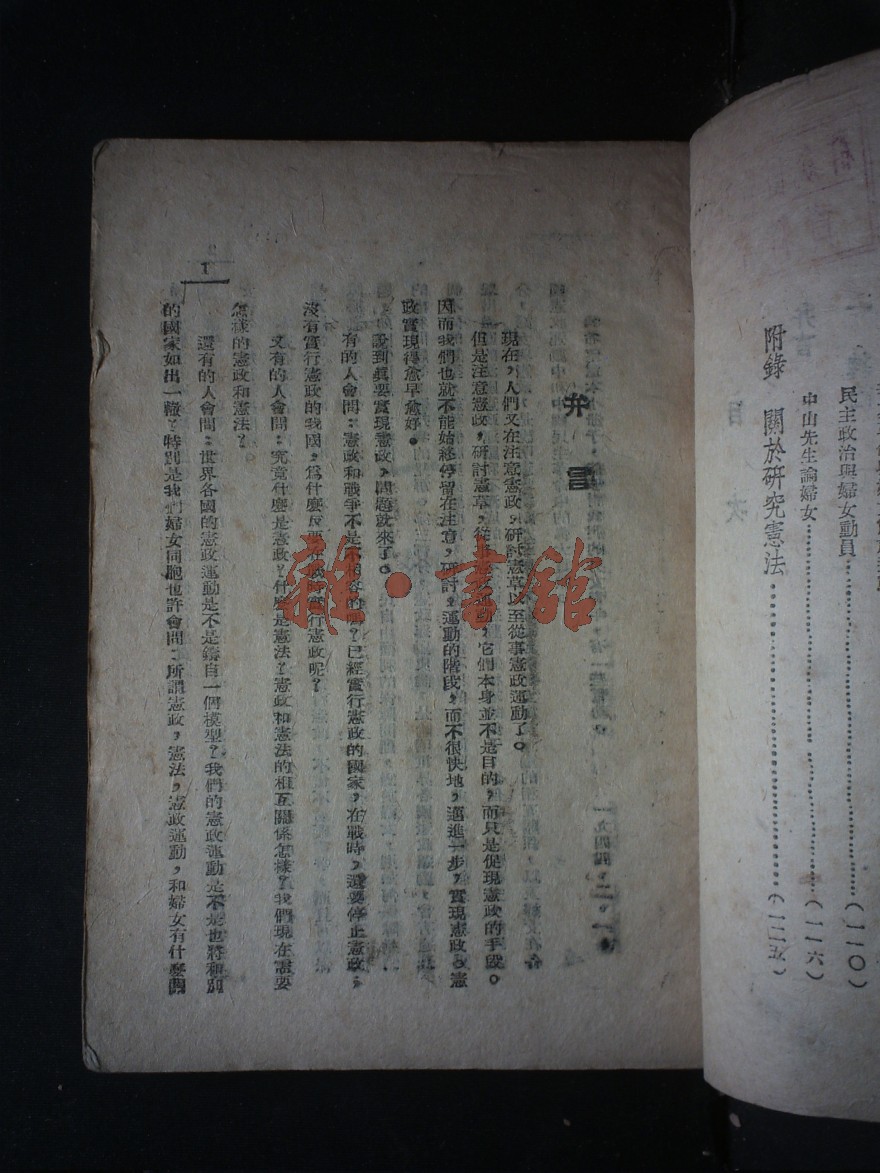 民主政治與婦女動員……………………………(一一〇)
中山先生論婦女……………………………(一一六)
附錄 關於研究憲法……………………………(一二五)
弁言
現在,人們又在注意憲政,研討憲草以至從事憲政運動了。
但是注意憲政,研討憲草,從事憲政運動,它們本身並不是目的,而只是促現憲政的手段。
因而我們也就不能始終停留在注意,研討,運動的階段,而不很快地,邁進一步,實現憲政,憲
政實現得愈早愈好。
說到眞要實現憲政,問題就來了。
有的人會問:憲政和戰爭不是不相容的嗎?已經實行憲政的國家,在戰時,還要停止憲政,
沒有實行憲政的我國,爲什麼反要在戰時實行憲政呢?
又有的人會問:究竟什麼是憲政?什麼是憲法?憲政和憲法的相互關係怎樣?我們現在需要
怎樣的憲政和憲法?
還有的人會問:世界各國的憲政運動是不是鑄自一個模型?我們的憲政運動是不是也將和別
的國家如出一轍?特別是我們婦女同胞也許會問:所謂憲政,憲法,憲政運動,和婦女有什麼關
1
雜·書館